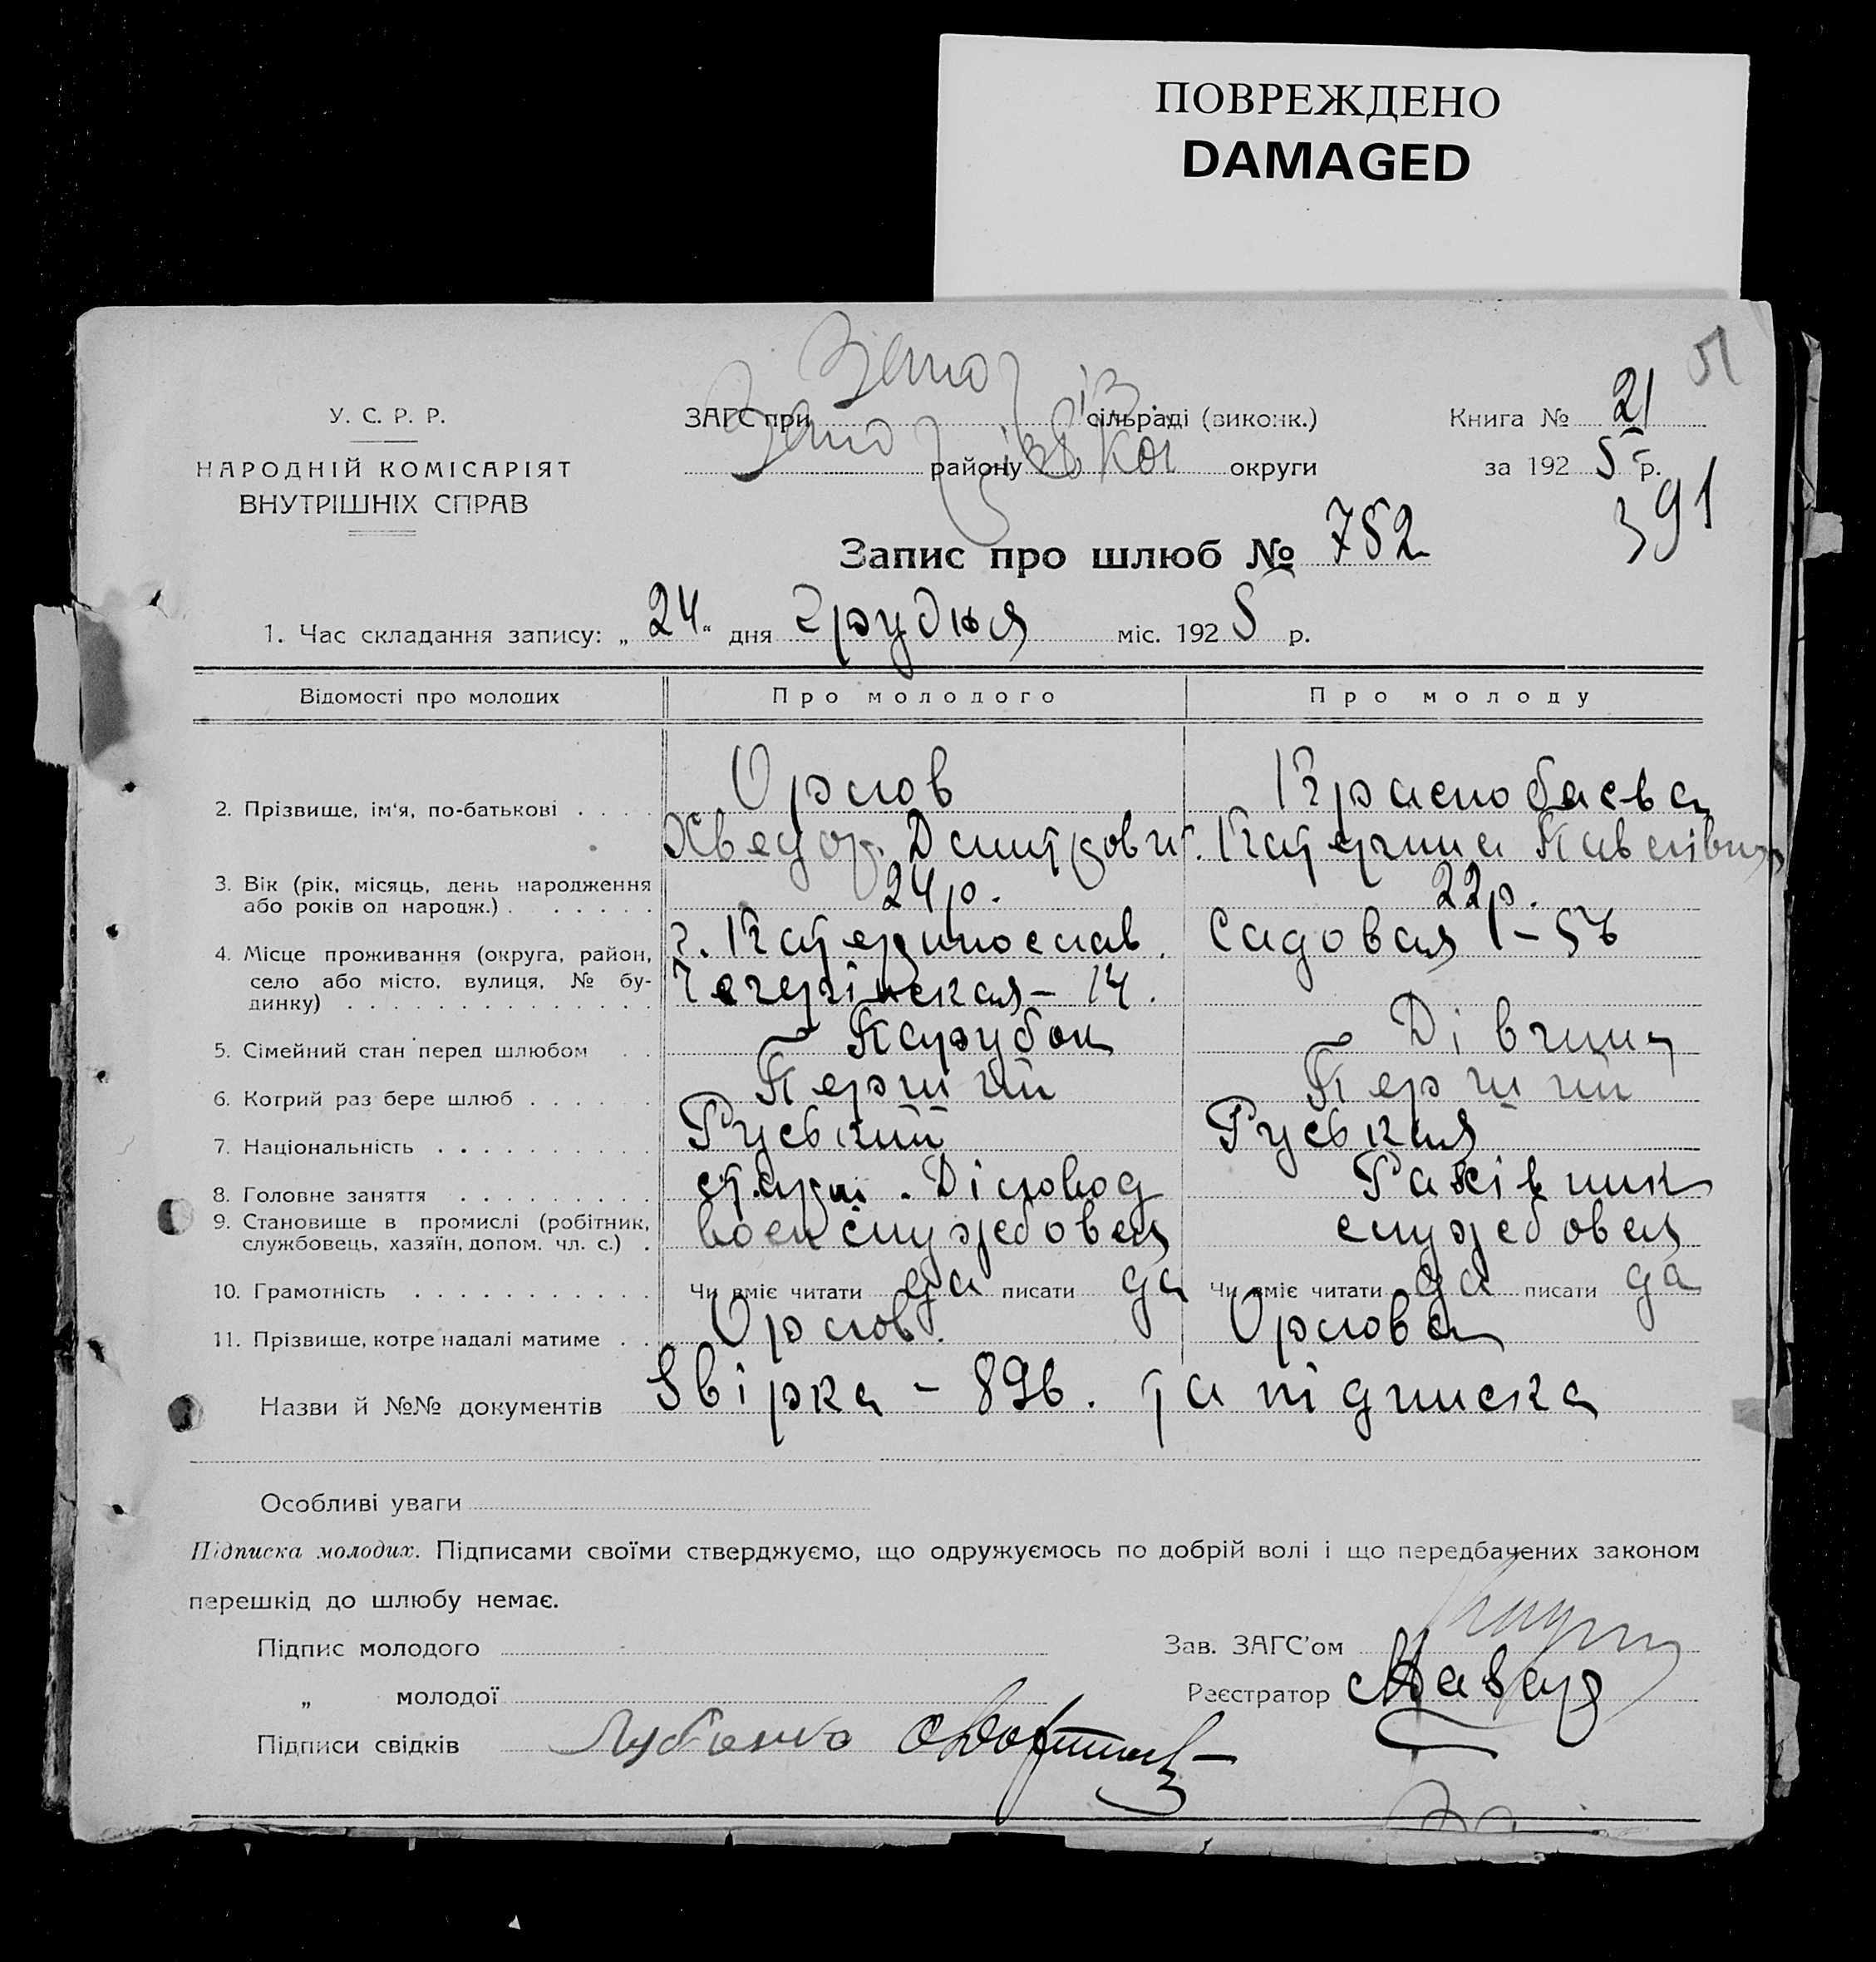 ПОВРЕЖДЕНО
DAMAGED
У. С. Р. Р.
НАРОДНІЙ КОМІСАРІЯТ
ВНУТРІШНІХ СПРАВ
ЗАГС при Запоріз. сільраді (виконк.)
Запорізької району округи
Книга № 21
за 1925 р.
391
Запис про шлюб № 752
1. Час складання запису: „24“ дня Грудня міс. 1925 р.
Відомості про молодих Про молодого Про молоду
2. Прізвище, ім'я, по-батькові . . . . Орлов Краснобаєва
Хведор. Дмитрович. Катерина Павлівна
3. Вік (рік, місяць, день народження або років од народж.) . . . . . . 24 р. 22 р.
4. Місце проживання (округа, район, село або місто, вулиця, № будинку) . . . г. Катеринослав. Садовая
Чечерінская – 14.
5. Сімейний стан перед шлюбом . . – Парубок – Дівчина
6. Котрий раз бере шлюб . . . . . . Перший Перший
7. Національність . . . . . . . . . Руський Руська
8. Головне заняття . . . . . . . . . старш. Діловод Рахівник
9. Становище в промислі (робітник, службовець, хазяїн, допом. чл. с.) . воен службовец службовец
10. Грамотність . . . . . . . . . . . Чи вміє читати да писати да Чи вміє читати да писати да
11. Прізвище, котре надалі матиме . . . Орлов. Орлова
Назви й №№ документів Звірка – 896. та підписка
Особливі уваги
Підписка молодих. Підписами своїми стверджуємо, що одружуємось по добрій волі і що передбачених законом
перешкід до шлюбу немає.
Підпис молодого Зав. ЗАГС'ом
„ молодої Реєстратор
Підписи свідків